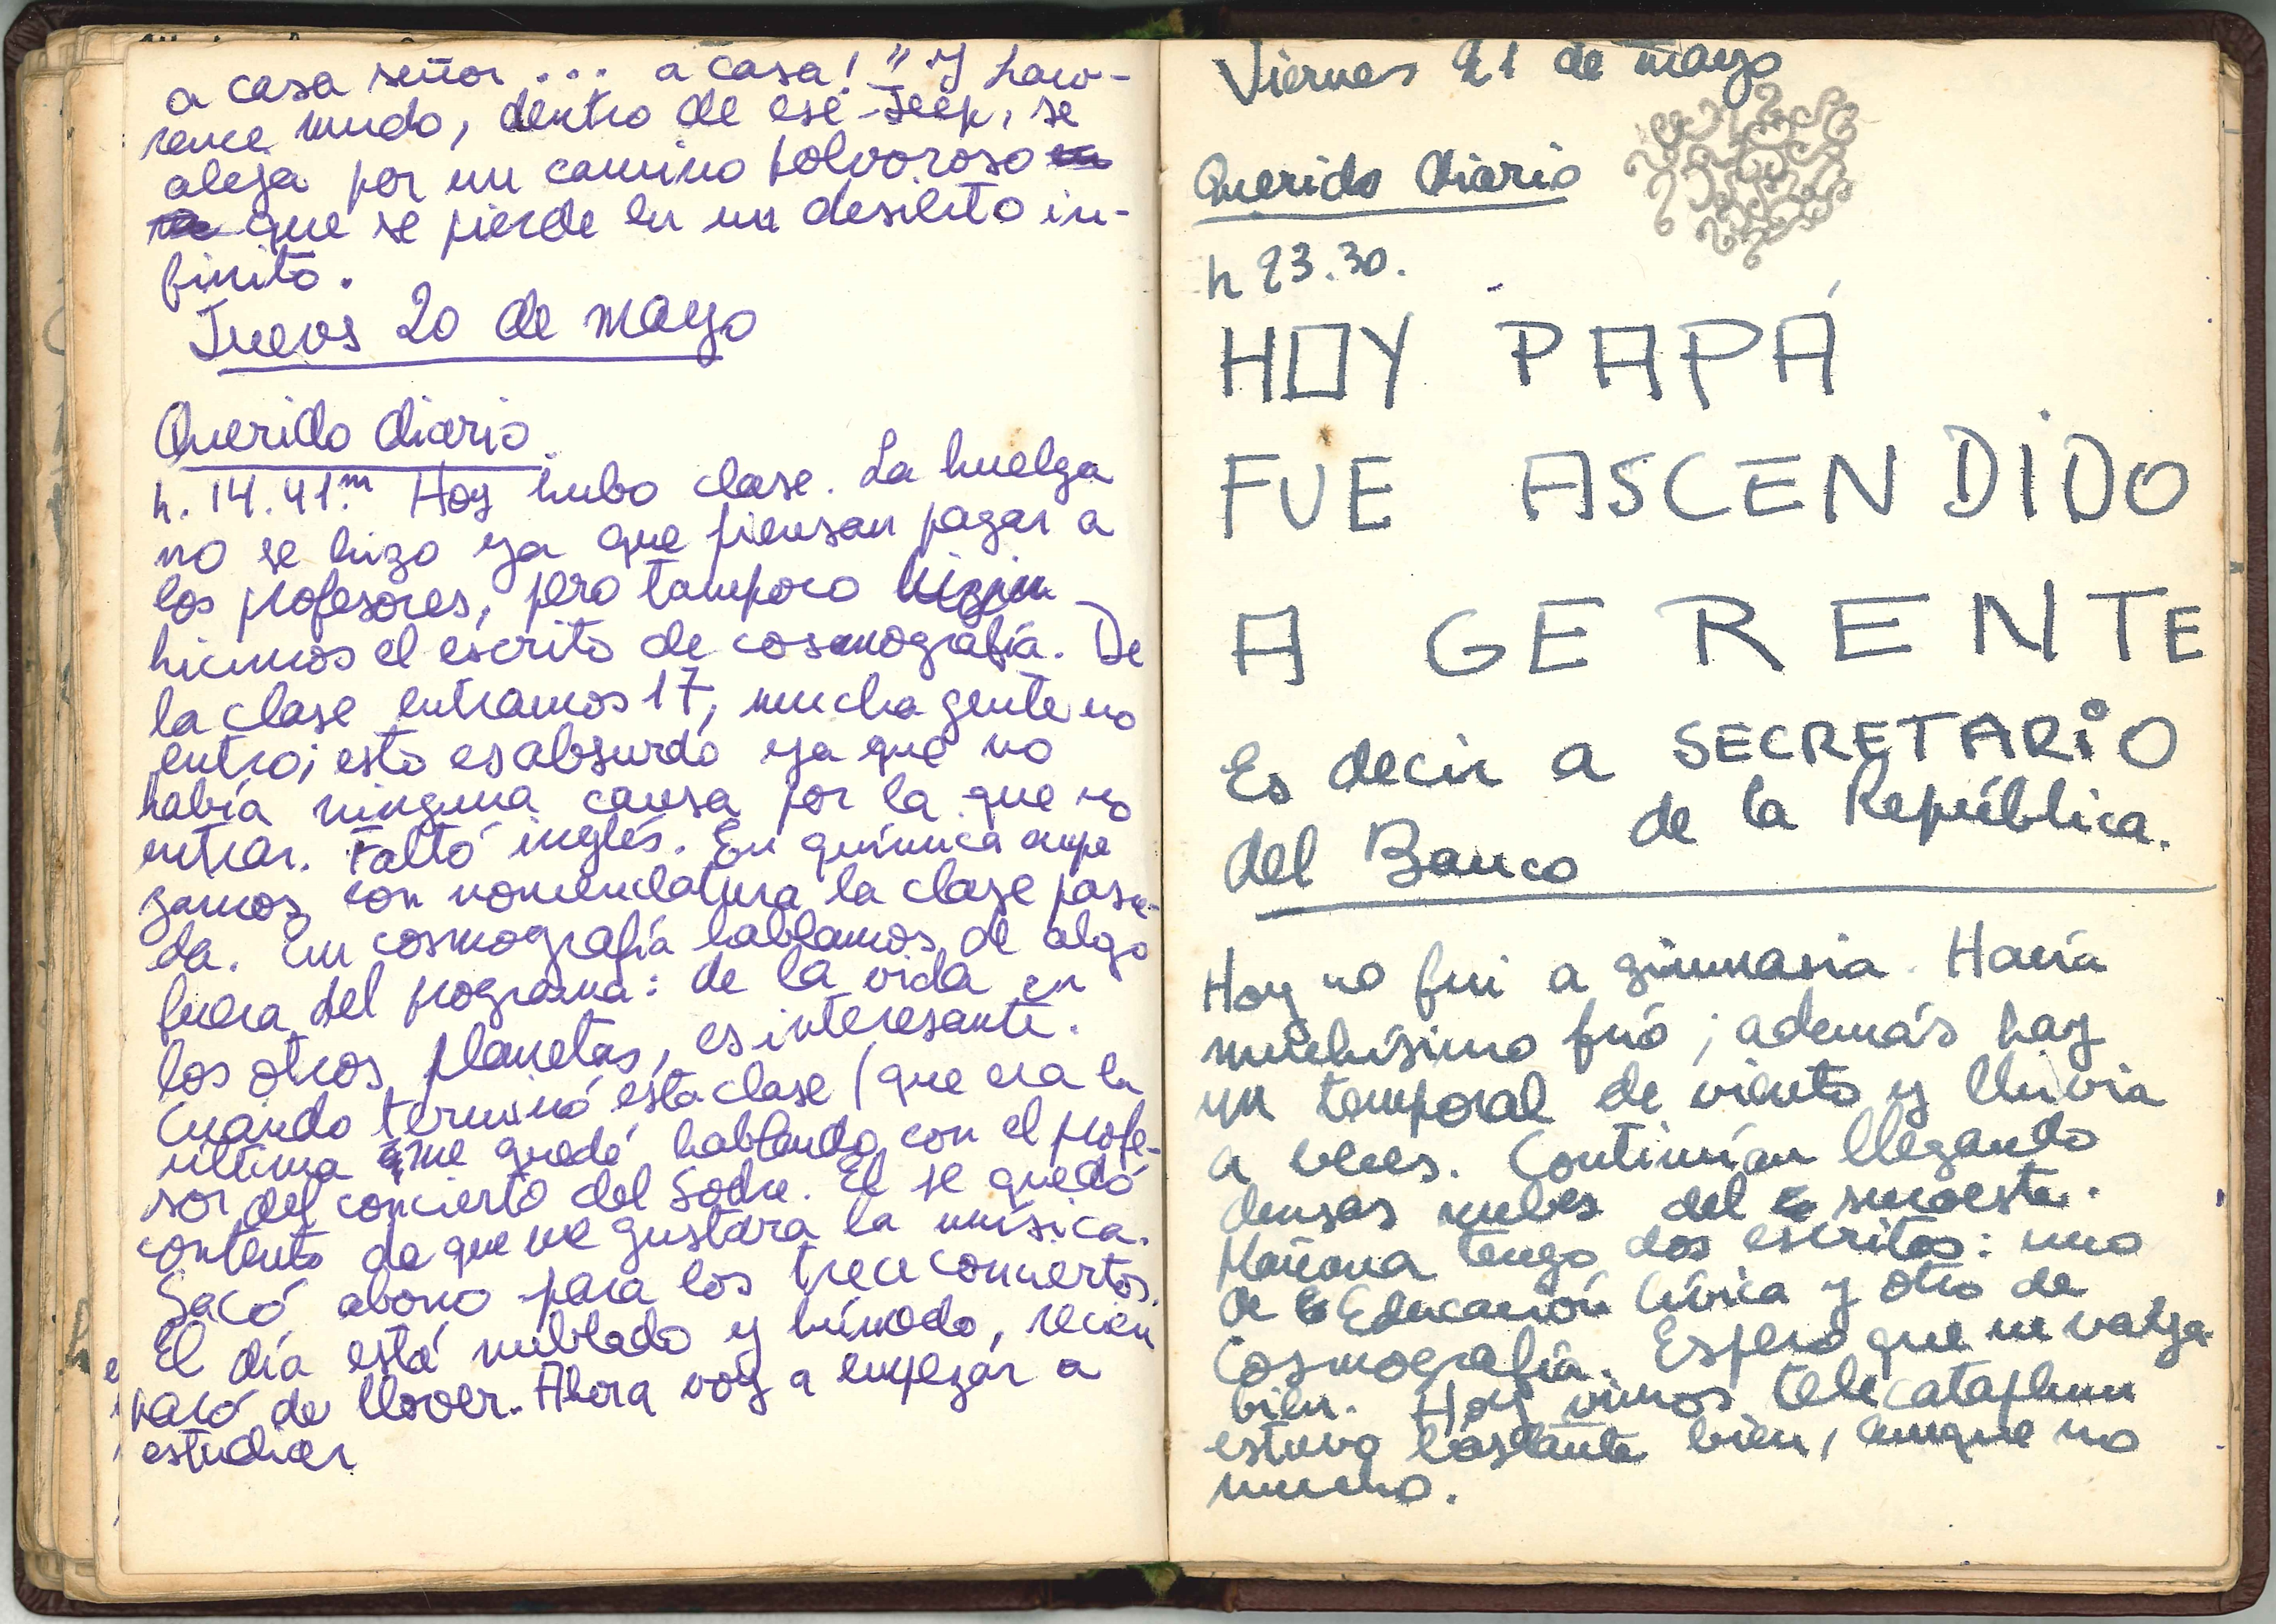 a casa señor . . . a casa! " Y Law-
rence mudo, dentro de ese Jeep, se
aleja por un camino polvoroso
que se pierde en un desierto in-
finito.
Jueves 20 de mayo
Querido diario.
h. 14.41m Hoy hubo clase. La huelga
no se hizo ya que piensan pagar a
los profesores, pero tampoco
hicimos el escrito de cosmografía. De
la clase entramos 17, mucha gente no
entró; esto es absurdo ya que no
había ninguna causa por la que no
entrar. Faltó inglés. En química empe
zamos con nomenclatura la clase pasa-
da. En cosmografía hablamos de algo
fuera del programa: de la vida en
los otros planetas, es interesante.
Cuando terminó esta clase (que era la
última me quedé hablando con el profe-
sor del concierto del Sodre. El se quedó
contento de que me gustara la música.
Sacó abono para los trece conciertos.
El día está nublado y húmedo, recién
paró de llover. Ahora voy a empezar a
estudiar
Viernes 21 de mayo
Querido diario
h 23.30.
HOY PAPÁ
FUE ASCENDIDO
A GERENTE
Es decir a SECRETARIO
del Banco de la República.
Hoy no fui a gimnasia. Hacía
muchísimo frió; además hay
un temporal de viento y lluvia
a veces. Continúan llegando
densas nubes del suroeste.
Mañana tengo dos escritos: uno
de Educación Cívica y otro de
Cosmografía. Espero que me vaya
bien. Hoy vimos telecataplum
estuvo bastante bien, aunque no
mucho.